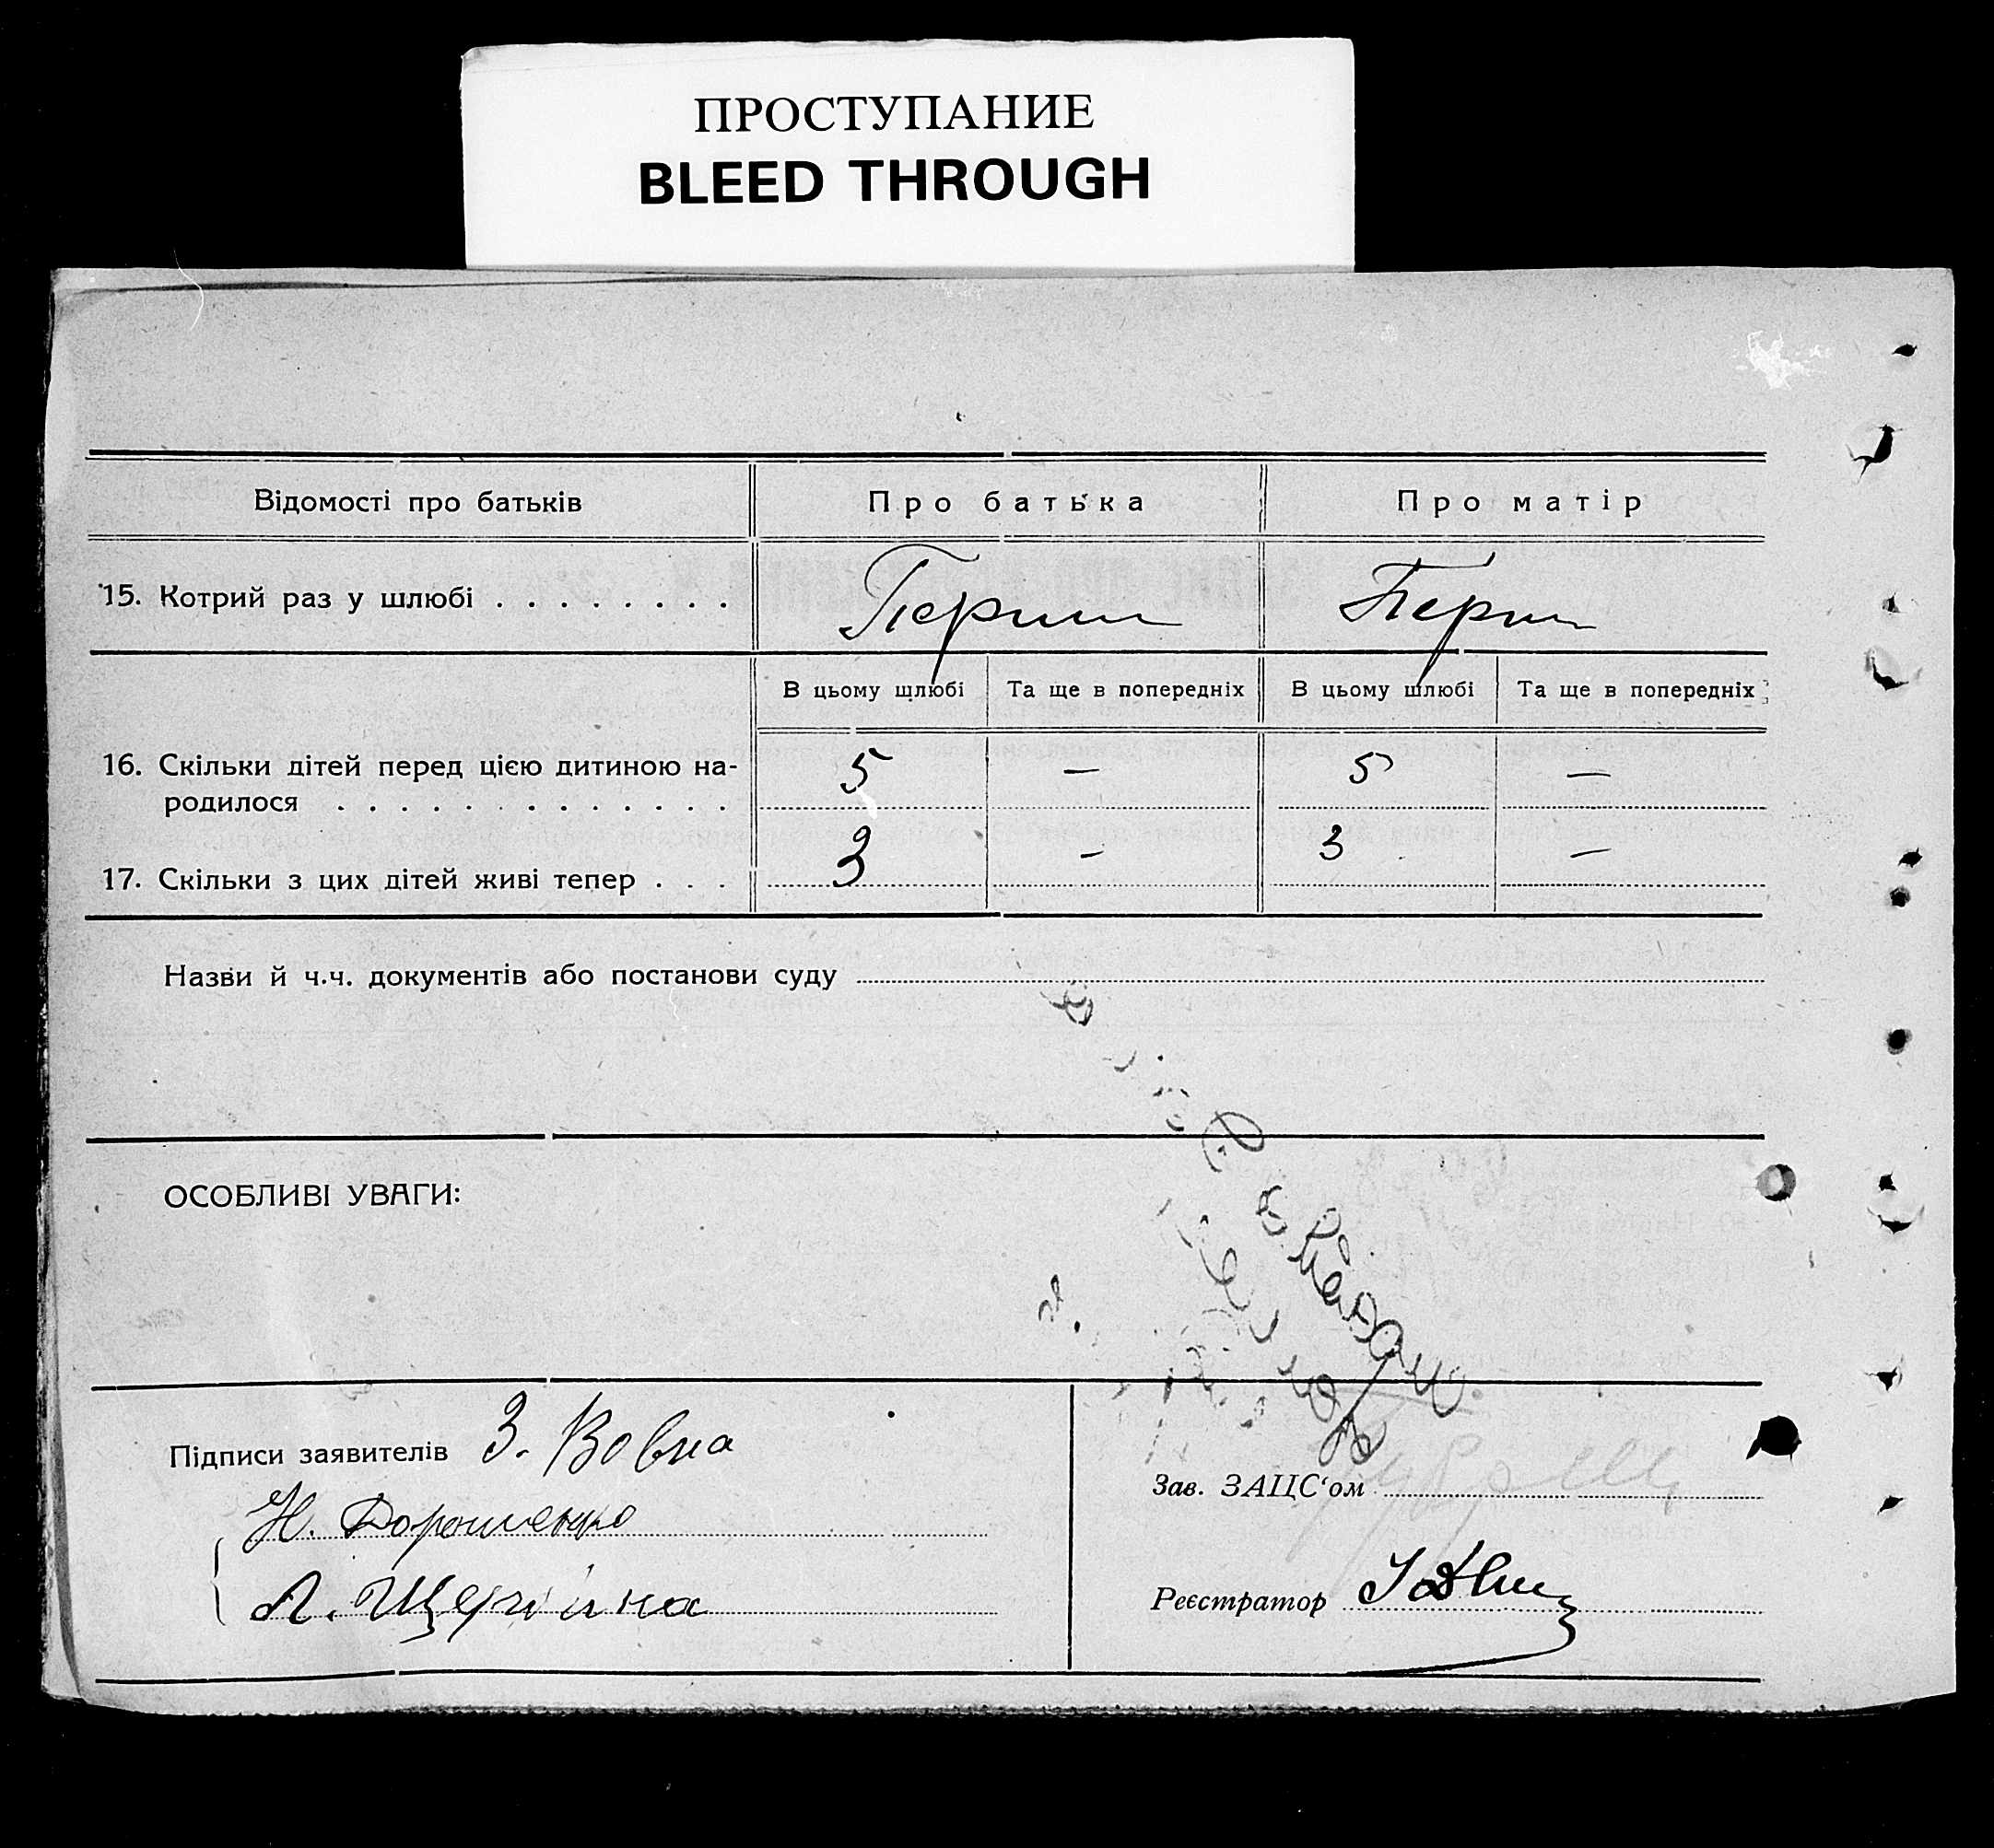 ПРОСТУПАНИЕ
BLEED THROUGH
Відомості про батьків Про батька Про матір
15. Котрий раз у шлюбі . . . . . . . . Перший Перш
В цьому шлюбі Та ще в попередніх В цьому шлюбі Та ще в попередніх
16. Скільки дітей перед цією дитиною на-
родилося . . . . . . . . . . . . . 5 — 5 —
17. Скільки з цих дітей живі тепер . . . 3 — 3 —
Назви й ч.ч. документів або постанови суду
ОСОБЛИВІ УВАГИ:
Підписи заявителів З. Вовна
Н. Дорошенко
Л. Щербина
Зав. ЗАЦС‘ом
Реєстратор